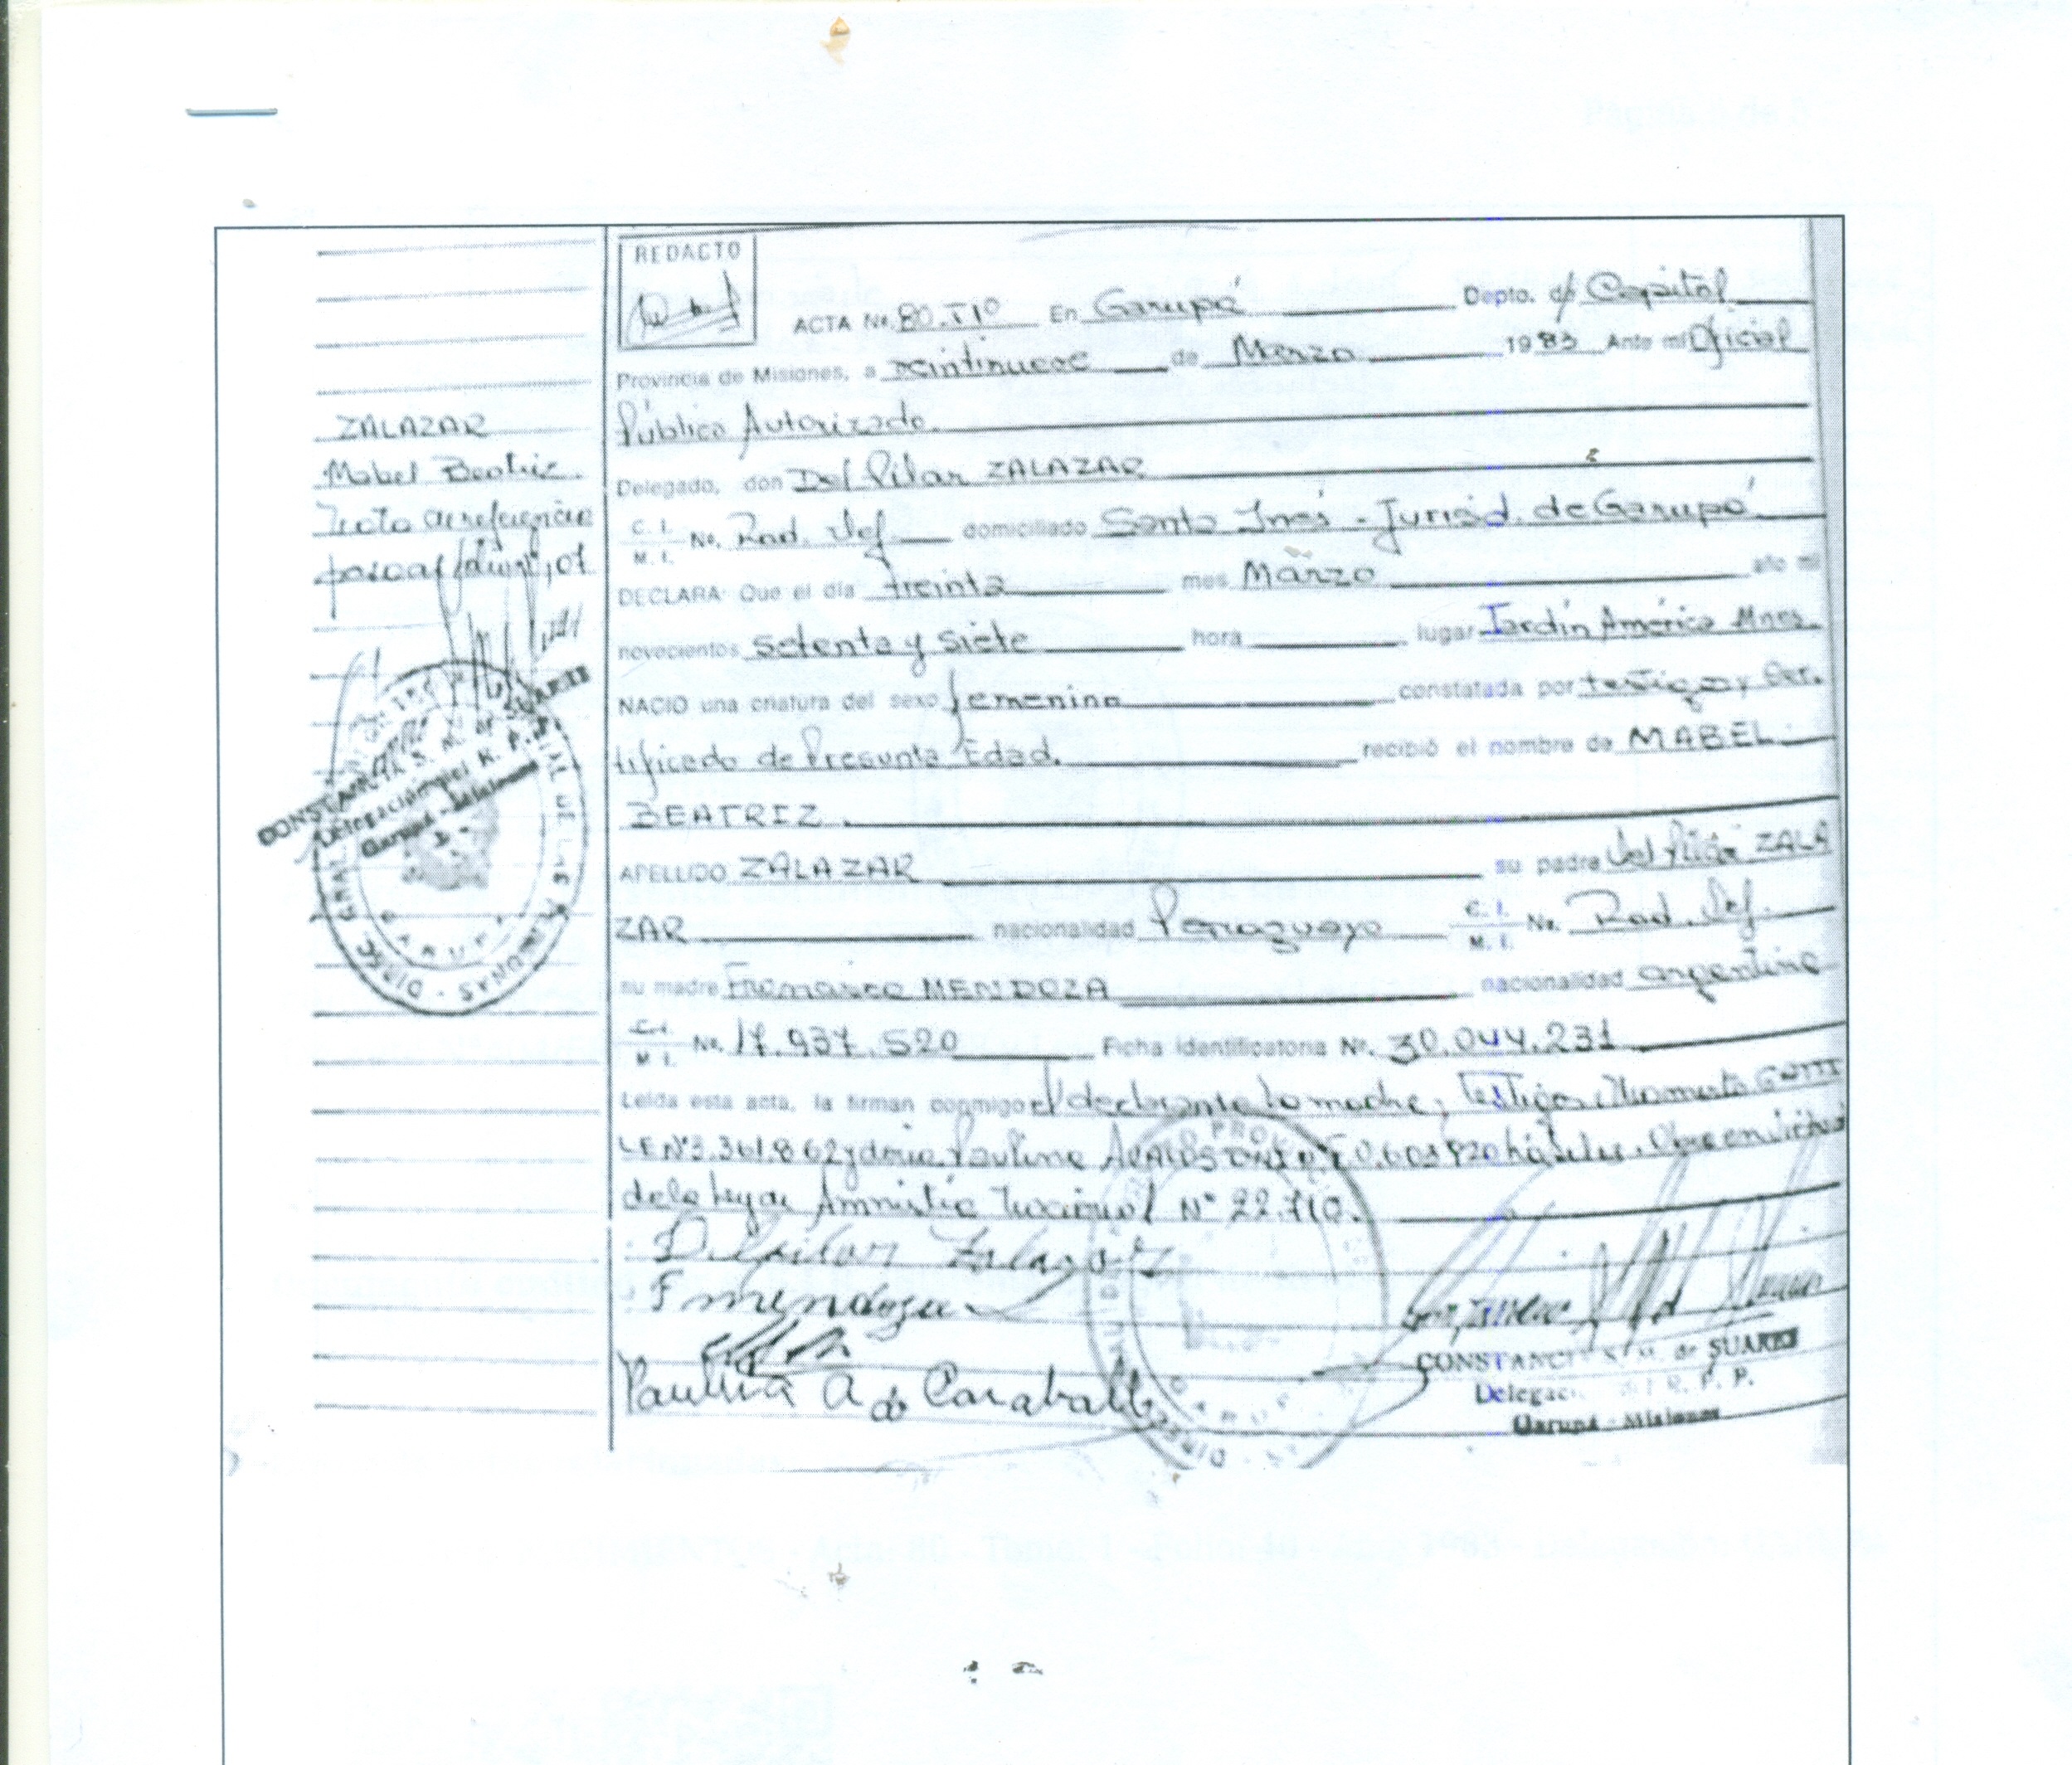 REDACTO
ACTA No. 80. Tº I En Garupá Depto. de Capital
Provincia de Misiones, a veintinueve de Marzo 1983 Ante mí Oficial
Público Autorizado.
Delegado, don Del Pilar ZALAZAR
C. I. M. I. No. Rad. Def. domiciliado Santa Inés - Jurisd. de Garupá
DECLARA: Que el día treinta mes Marzo año mil
novecientos setenta y siete hora lugar Jardín América Mnes.
NACIO una criatura del sexo femenino constatada por testigos y Cer.
tificado de Presunta Edad. recibió el nombre de MABEL
BEATRIZ.
APELLIDO ZALAZAR su padre Del Pilar ZALA
ZAR nacionalidad Paraguaya C. I. M. I. No. Rad. Def.
su madre Francisca MENDOZA nacionalidad argentina
C. I. M. I. No. 17.937.520 Ficha Identificatoria No. 30.044.231
Leída esta acta, la firman conmigo el declarante la madre, Testigos GOTTI
LE Nº 3.361.862 y doña Paulina hábiles. Obra en virtud
de la ley de Amnistía Nacional Nº 22.710.
Delpilar Zalazar
F mendoza
Paulina A de Caraballo
CONSTANCIA M. de SUAREZ
Delegación del R. P. P.
Garupá - Misiones
ZALAZAR
Mabel Beatriz.
CONSTANCIA S. M. de SUAREZ
Delegación del R. P. P.
Garupá - Misiones
GARUPA